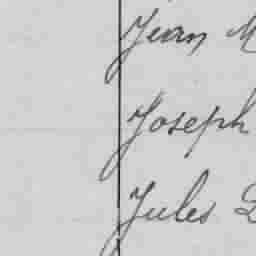 Jean M
Joseph
Jules L